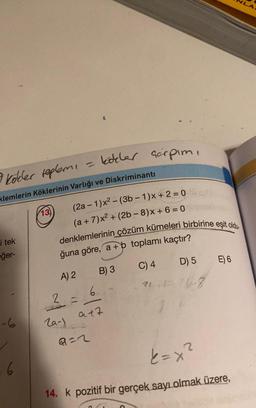 kökler toplamı = kökler çarpımı
klemlerin Köklerinin Varlığı ve Diskriminantı
13.
(2a – 1)x² – (3b – 1)x + 2 = 0
(a + 7)x² + (2b – 8)x + 6 = 0
denklemlerinin çözüm kümeleri birbirine eşit oldu-
ğuna göre, a + b toplamı kaçtır?
A) 2 B) 3 C) 4 D) 5 E) 6
i tek
ğer-
2/2a-1 = 6/a+7
a=2
-6
6
k=x²
14. k pozitif bir gerçek sayı olmak üzere,